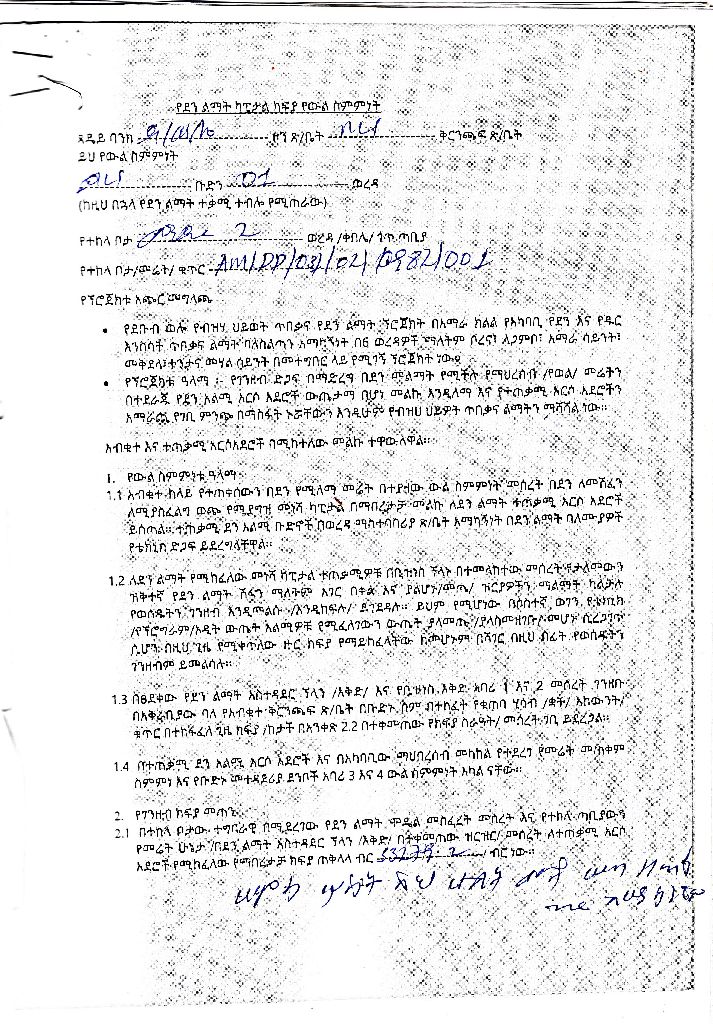 የደን ልማት ካፒታል ክፍያ የውል ስምምነት
ባንክ ዞን ጽ/ቤት ቅርንጫፍ ጽ/ቤት
ይህ የውል ስምምነት
ቡድን 01 ወረዳ
(ከዚህ በኋላ የደን ልማት ተቃሚ ተብሎ የሚጠራው)
የተከላ ቦታ 2 ወረዳ /ቀበሌ/ ጎጥ ጣቢያ
የተከላ ቦታ/መሬት/ ቁጥር
የፕሮጀክቱ አጭር መግለጫ
• የደቡብ ወሎ የብዝሃ ህይወት ጥበቃና የደን ልማት ፕሮጀክት በአማራ ክልል የአካባቢ የደን እና የዱር
እንስሳት ጥበቃና ልማት ባለስልጣን አማካኝነት በ6 ወረዳዎች ማለትም ቦረና፣ ለጋምቦ፣ አማራ ሳይንት፣
መቅደላ፣ተንታና መሃል ሳይንት በመተግበር ላይ የሚገኝ ፕሮጀክት ነው።
• የፕሮጀክቱ ዓላማ ፡- የገንዘብ ድጋፍ በማድረግ በደን መልማት የሚችሉ የማህረሰብ /የወል/ መሬትን
በተደራጁ የደን አልሚ አርሶ አደሮች ውጤታማ በሆነ መልኩ እንዲለማ እና የተጠቃሚ አርሶ አደሮችን
አማራጯ የገቢ ምንጭ በማስፋት ኑሯቸውን እንዲሁም የብዝሀ ህይዎት ጥበቃና ልማትን ማሻሻል ነው።
አብቁተ እና ተጠቃሚ አርሶአደሮች በሚከተለው መልኩ ተዋውለዋል።
1. የውል ስምምነቱ ዓላማ
1.1 አብቁተ ከላይ የተጠቀሰውን በደን የሚለማ መሬት በተያዘው ውል ስምምነት መሰረት በደን ለመሸፈን
ለሚያስፈልግ ወጭ የሚያግዝ መነሻ ካፒታል በማበረታቻ መልኩ ለደን ልማት ተጠቃሚ አርሶ አደሮች
ይሰጣል። ተጠቃሚ ደን አልሚ ቡድኖች በወረዳ ማስተባባሪያ ጽ/ቤት አማካኝነት በደን ልማት ባለሙያዎች
የቴክኒክ ድጋፍ ይደረግላቸዋል።
1.2 ለደን ልማት የሚከፈለው መነሻ ካፒታል ተጠቃሚዎቹ በቢዝነስ ፕላኑ በተመላከተው መሰረት ያታለመውን
ዝቅተኛ የደን ልማት ሽፋን ማለትም አገር በቀል እና ያልሆኑ/መጤ/ ዝርያዎችን ማልማት ካልቻሉ
የወሰዱትን ገንዘብ እንዲመልሱ /እንዲከፍሉ/ ይገደዳሉ። ይህም የሚሆነው በሶስተኛ ወገን የቴክኒክ
/የፕሮግራም/ኦዲት ውጤት አልሚዎቹ የሚፈለገውን ውጤት ያላመጡ /ያላስመዘገቡ/ መሆኑ ሲረጋገጥ
ሲሆን በዚህ ጊዜ የሚቀጥለው ዙር ክፍያ የማይከፈላቸው ከመሆኑም በሻገር በዚህ ስፊት የወሰዱትን
ገንዘብም ይመልሳሉ።
1.3 በፀደቀው የደን ልማት አስተዳደር ፕላን /እቅድ/ እና የቢዝነስ እቅድ አባሪ 1 እና 2 መሰረት ገንዘቡ
በአቅራቢያው ባለ የአብቁተ ቅርንጫፍ ጽ/ቤት በቡድኑ ስም በተከፈተ የቁጠባ ሂሳብ /ቋት/ አካውንት/
ቁጥር በተከፋፈለ ጊዜ ክፍያ /ከታች በአንቀጽ 2.2 በተቀመጠው የክፍያ ስራዓት/ መሰረት ገቢ ይደረጋል።
1.4 በተጠቃሚ ደን አልሚ አርሶ አደሮች እና በአካባቢው ማህበረሰብ መካከል የተደረገ የመሬት መጠቀም
ስምምነ እና የቡድኑ መተዳደሪያ ደንቦች አባሪ 3 እና 4 ውል ስምምነት አካል ናቸው።
2. የገንዘብ ክፍያ መጠን
2.1 በተከላ ቦታው ተግባራዊ በሚደረገው የደን ልማት ሞዴል መስፈረት መሰረት እና የተከላ ጣቢያውን
የመሬት ሁኔታ /በደን ልማት አስተዳደር ፕላን /እቅድ/ በተቀመጠው ዝርዝር/ መሰረት ለተጠቃሚ አርሶ
አደሮች የሚከፈለው የማበረታቻ ክፍያ ጠቅላላ ብር / ብር ነው።